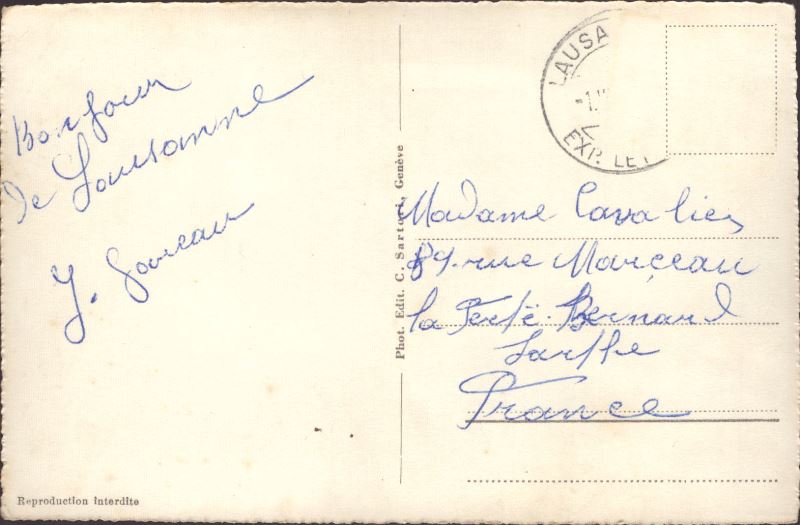 Bonjour
de Lausanne
J.
LAUSA
-1.
EXP. LET
Phot. Edit. C. Sartori, Genève
Madame Cavalier
89. rue Marceau
La Ferté-Bernard
Sarthe
France
Reproduction interdite